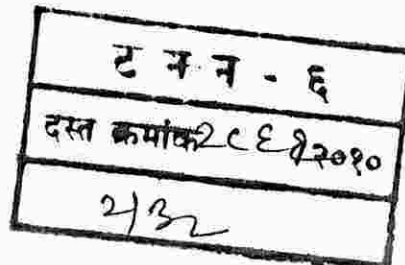 ट न न - ६
दस्त क्रमांक २८६१/२०१०
२/३२